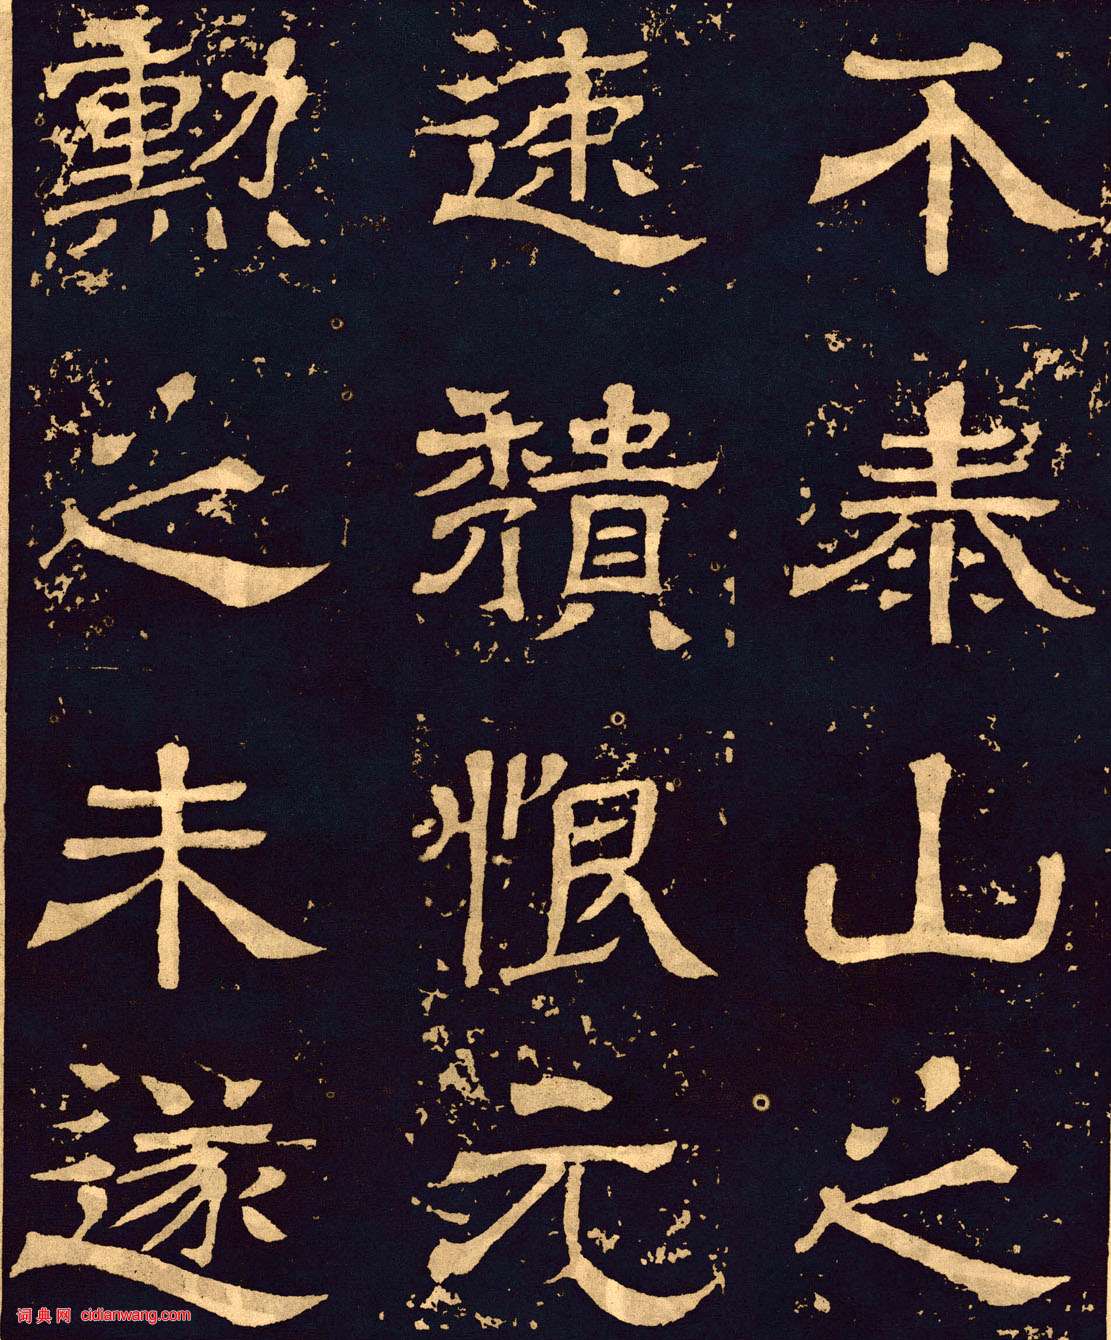 不泰山之
速穨恨元
勳之未遂
词典网 cidianwang.com